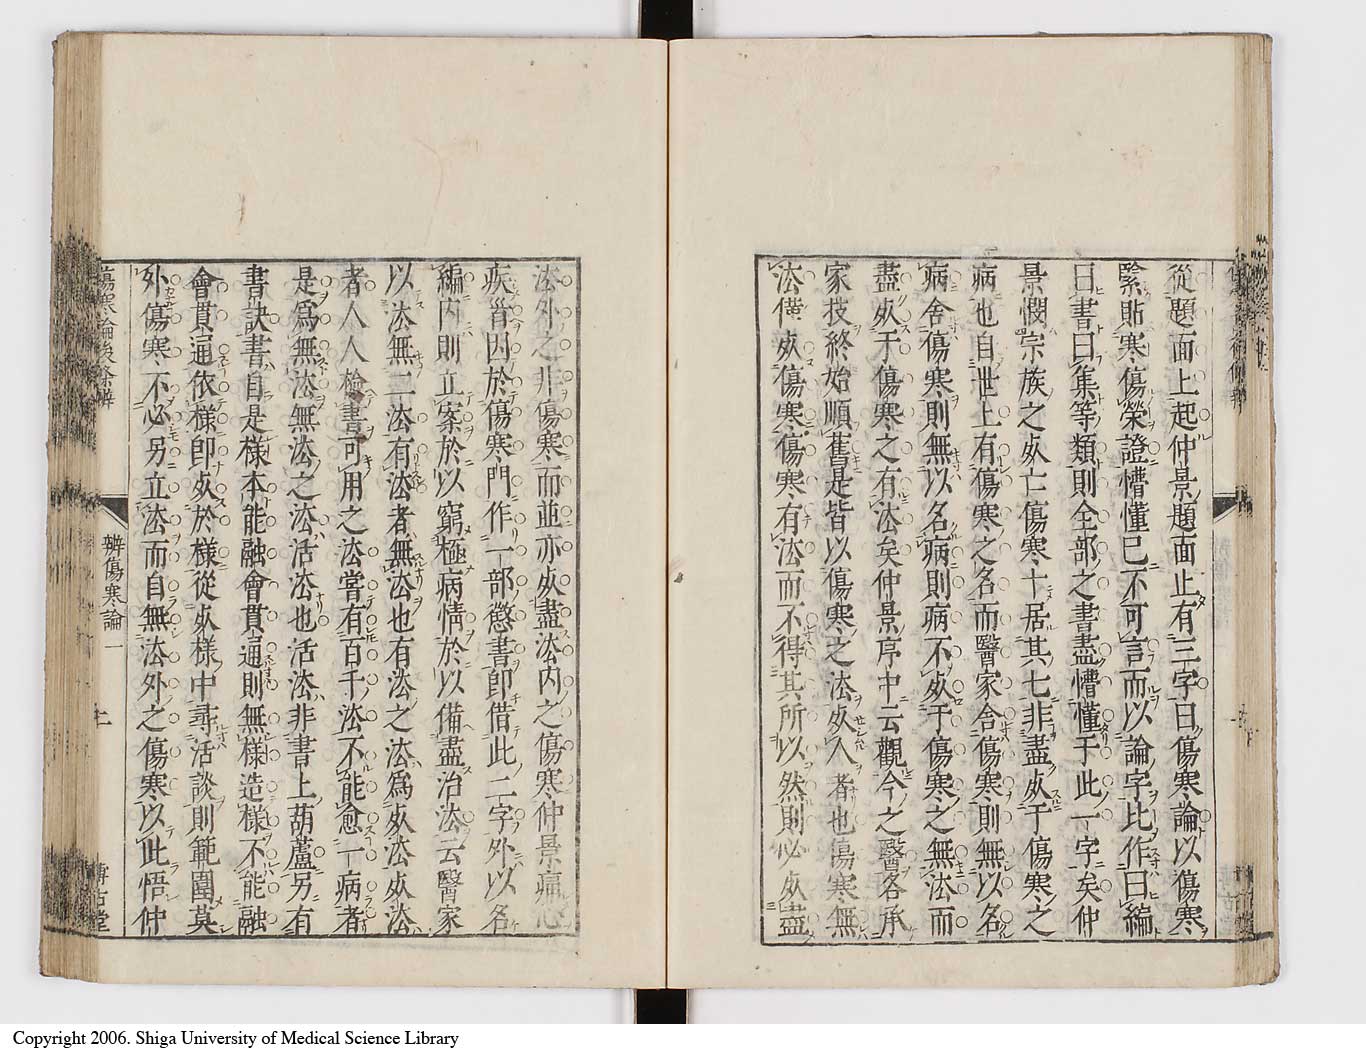 從題面上起仲景題面止有三字曰傷寒論以傷寒
緊貼寒傷榮證懵懂已不可言而以論字比作曰編
曰書曰集等類則全部之書盡懵懂于此一字矣仲
景憫宗族之死亡傷寒十居其七非盡死于傷寒之
病也自世上有傷寒之名而醫家舍傷寒則無以名
病舍傷寒則無以名病則病不死于傷寒之無法而
盡死于傷寒之有法矣仲景序中云觀今之醫各承
家技終始順舊是皆以傷寒之法死人者也傷寒無
法僕死傷寒傷寒有法而不得其所以然則必死盡
法外之非傷寒而並亦死盡法内之傷寒仲景痛心
疾首因於傷寒門作一部懲書即借此二字外以名
編内則立案於以窮極病情於以備盡治法云醫家
以法無二法有法者無法也有法之法爲死法死法
者人人檢書可用之法嘗有百千法不能愈一病者
是爲無法無法之法活法也活法非書上葫蘆另有
書訣書自是樣本能融會貫通則無樣造樣不能融
會貫通依樣即死於樣從死樣中尋活談則範圍莫
外傷寒不必另立法而自無法外之傷寒以此悟仲
傷寒論後條辨
辨傷寒論一
上
博古堂
Copyright 2006. Shiga University of Medical Science Library